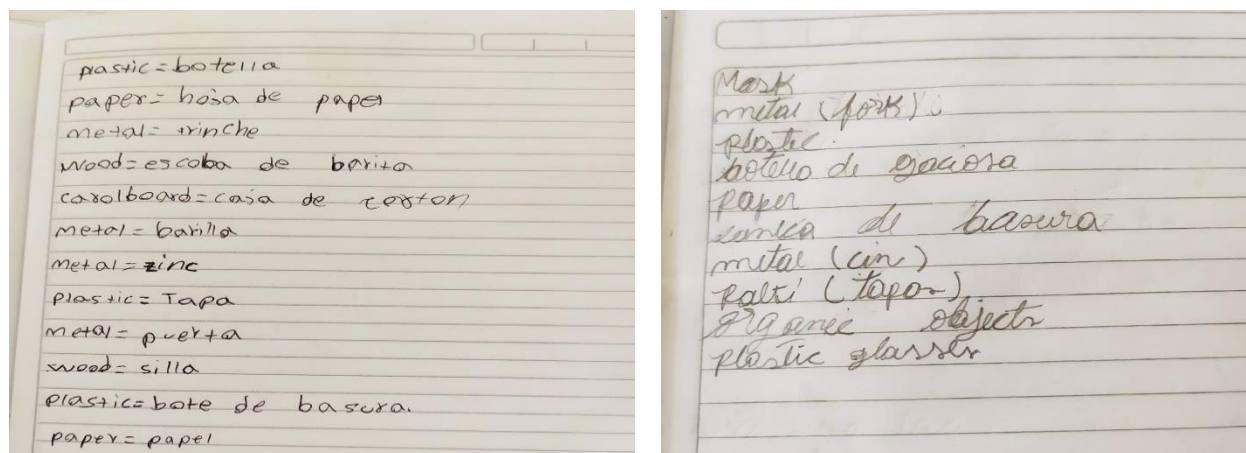 plastic=botella
paper=hoja de papel
metal=trinche
wood=escoba de barita
carolboard=caja de corton
metal=barilla
metal=zinc
plastic=Tapa
metal=puerta
wood=silla
plastic=bote de basura.
paper=papel
Mask
metal (fork)
plastic.
botella de gaciosa
paper
de basura
metal (cin)
(tapar)
organic objects
plastic glasses